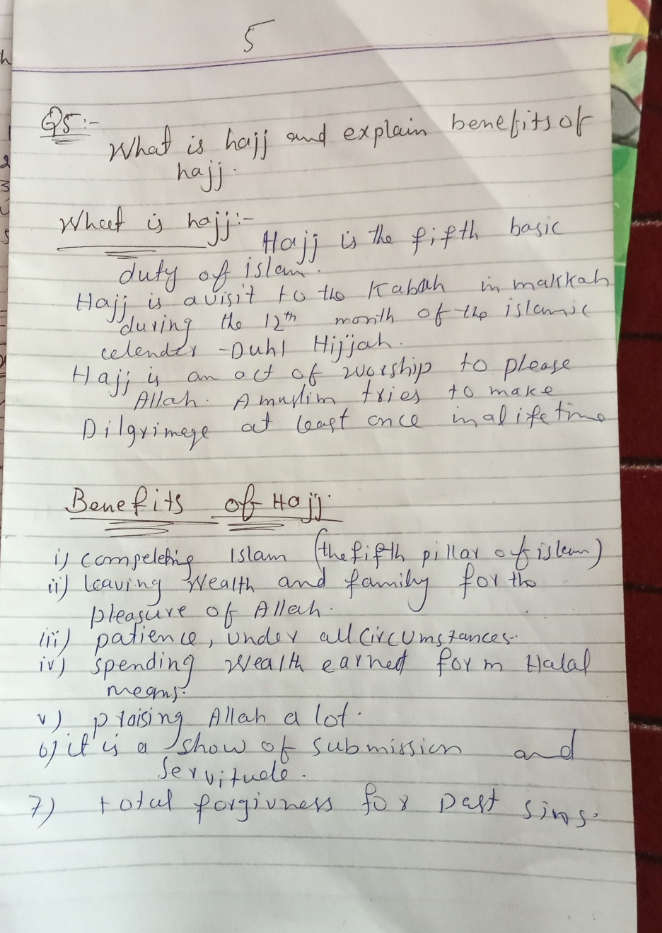 5
Q5:-
What is hajj and explain benefits of
hajj.
What is hajj:-
Hajj is the fifth basic
duty of islam.
Hajj is a visit to the Kabah in makkah
during the 12th month of the islamic
celender - Duhl Hijjah.
Hajj is an act of worship to please
Allah. A muslim tries to make
Dilgrimege at least once in a life time
Benefits of Hajj.
i) compeleting Islam (the fifth pillar of islam)
ii) leaving Wealth and family for the
pleasure of Allah.
iii) patience, under all circumstances.
iv) spending Wealth earned form Halal
means.
v) praising Allah a lot.
6) it is a show of submission and
servitude.
7) total forgivness for past sins.